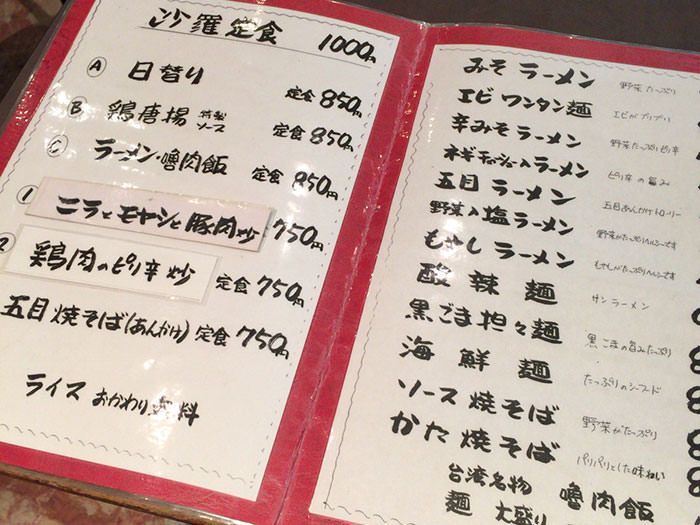 沙羅定食 1000円
Ⓐ 日替り 定食 850円
Ⓑ 鶏唐揚 特製ソース 定食 850円
Ⓒ ラーメン・嚕肉飯 定食 850円
① ニラとモヤシと豚肉炒 750円
2 鶏肉のピリ辛炒 定食 750円
五目焼そば(あんかけ) 定食 750円
ライス おかわり無料
みそラーメン 野菜たっぷり
エビワンタン麺 エビがプリプリ
辛みそラーメン 野菜たっぷりピリ辛
ネギチャーシュー入ラーメン ピリ辛の旨み
五目ラーメン 五目あんかけトロ〜リー
野菜入塩ラーメン 野菜がたっぷりヘルシーです
もやしラーメン もやしがたっぷりヘルシーです
酸辣麺 サンラーメン
黒ごま担々麺 黒ごまの旨みたっぷり
海鮮麺 たっぷりのシーフード
ソース焼そば 野菜がたっぷり
かた焼そば パリパリとした味わい
台湾名物 嚕肉飯
麺 大盛り